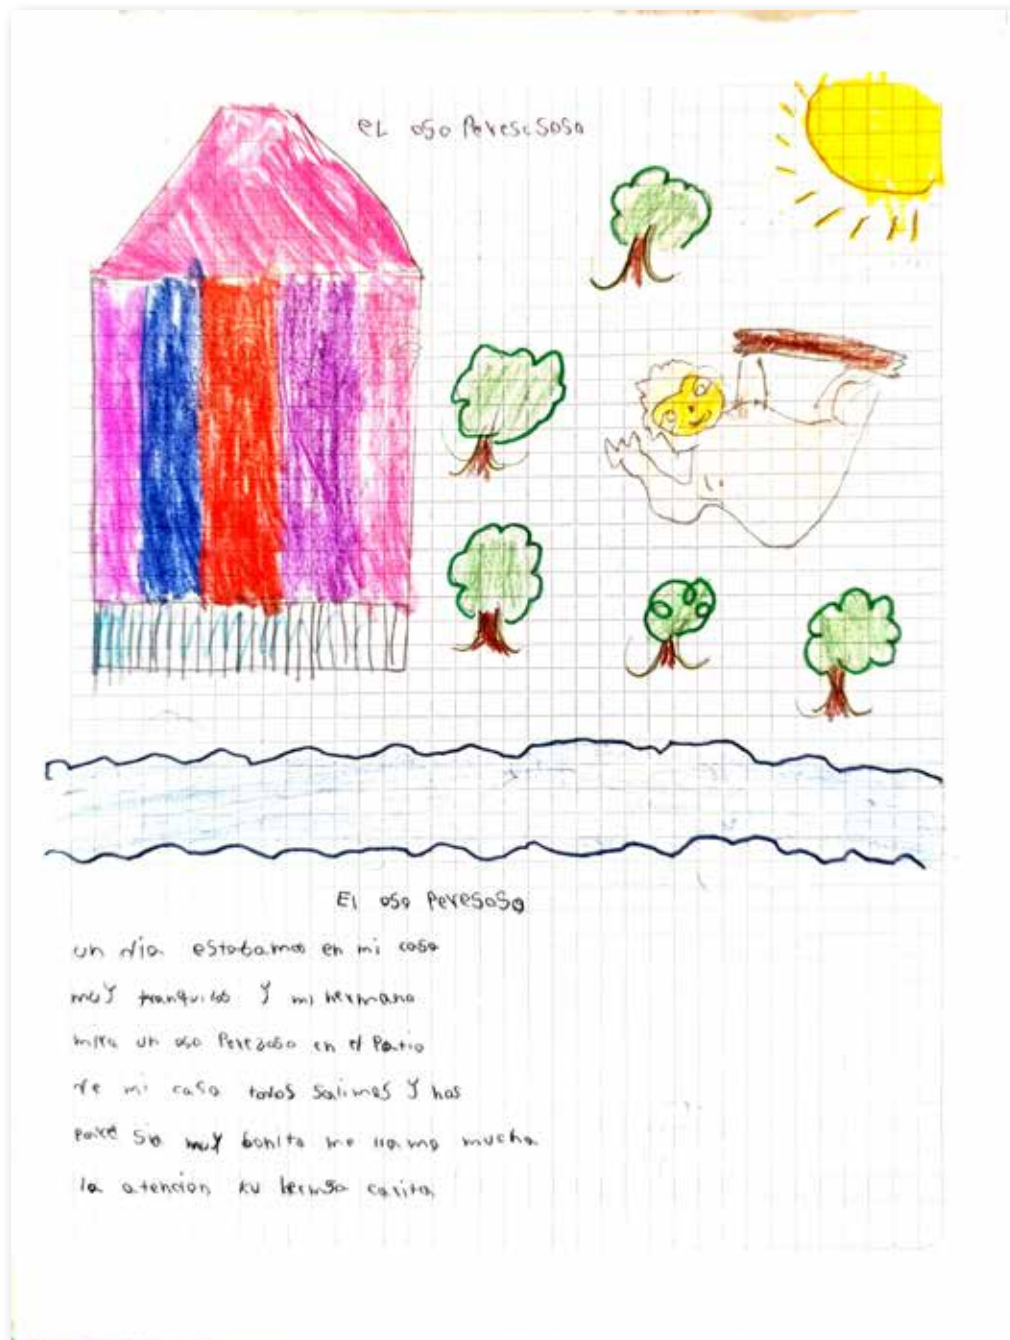 eL oso Peresesoso
El oso Peresoso
un dia estabamos en mi casa
muy tranquilos y mi hermana
mira un oso Peresoso en el Patio
de mi casa todos salimos y nos
paresio muy bonito me llamo mucha
la atencion su hermosa carita